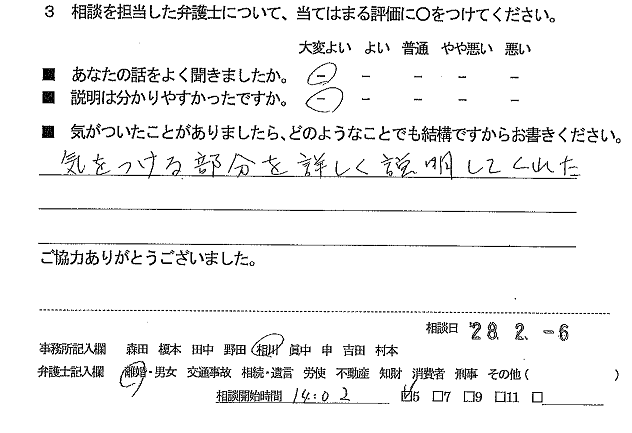 3 相談を担当した弁護士について、当てはまる評価に○をつけてください。
大変よい よい 普通 やや悪い 悪い
■ あなたの話をよく聞きましたか。 － － － － －
■ 説明は分かりやすかったですか。 － － － － －
■ 気がついたことがありましたら、どのようなことでも結構ですからお書きください。
気をつける部分を詳しく説明してくれた
ご協力ありがとうございました。
相談日 '28.2.-6
事務所記入欄 森田 榎本 田中 野田 相川 眞中 申 吉田 村本
弁護士記入欄 離婚・男女 交通事故 相続・遺言 労使 不動産 知財 消費者 刑事 その他（ ）
相談開始時間 14:02 ☑5 □7 □9 □11 □